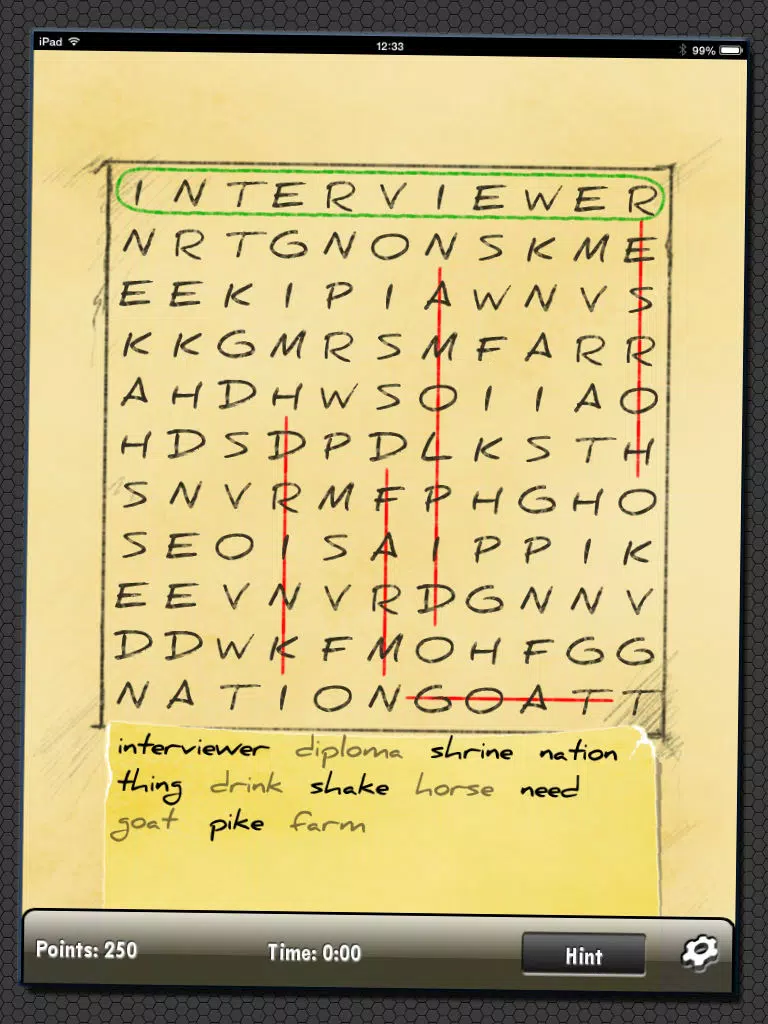 iPad 12:33 99%
I N T E R V I E W E R
N R T G N O N S K M E
E E K I P I A W N V S
K K G M R S M F A R R
A H D H W S O I I A O
H D S D P D L K S T H
S N V R M F P H G H O
S E O I S A I P P I K
E E V N V R D G N N V
D D W K F M O H F G G
N A T I O N G O A T T
interviewer diploma shrine nation
thing drink shake horse need
goat pike farm
Points: 250 Time: 0:00 Hint